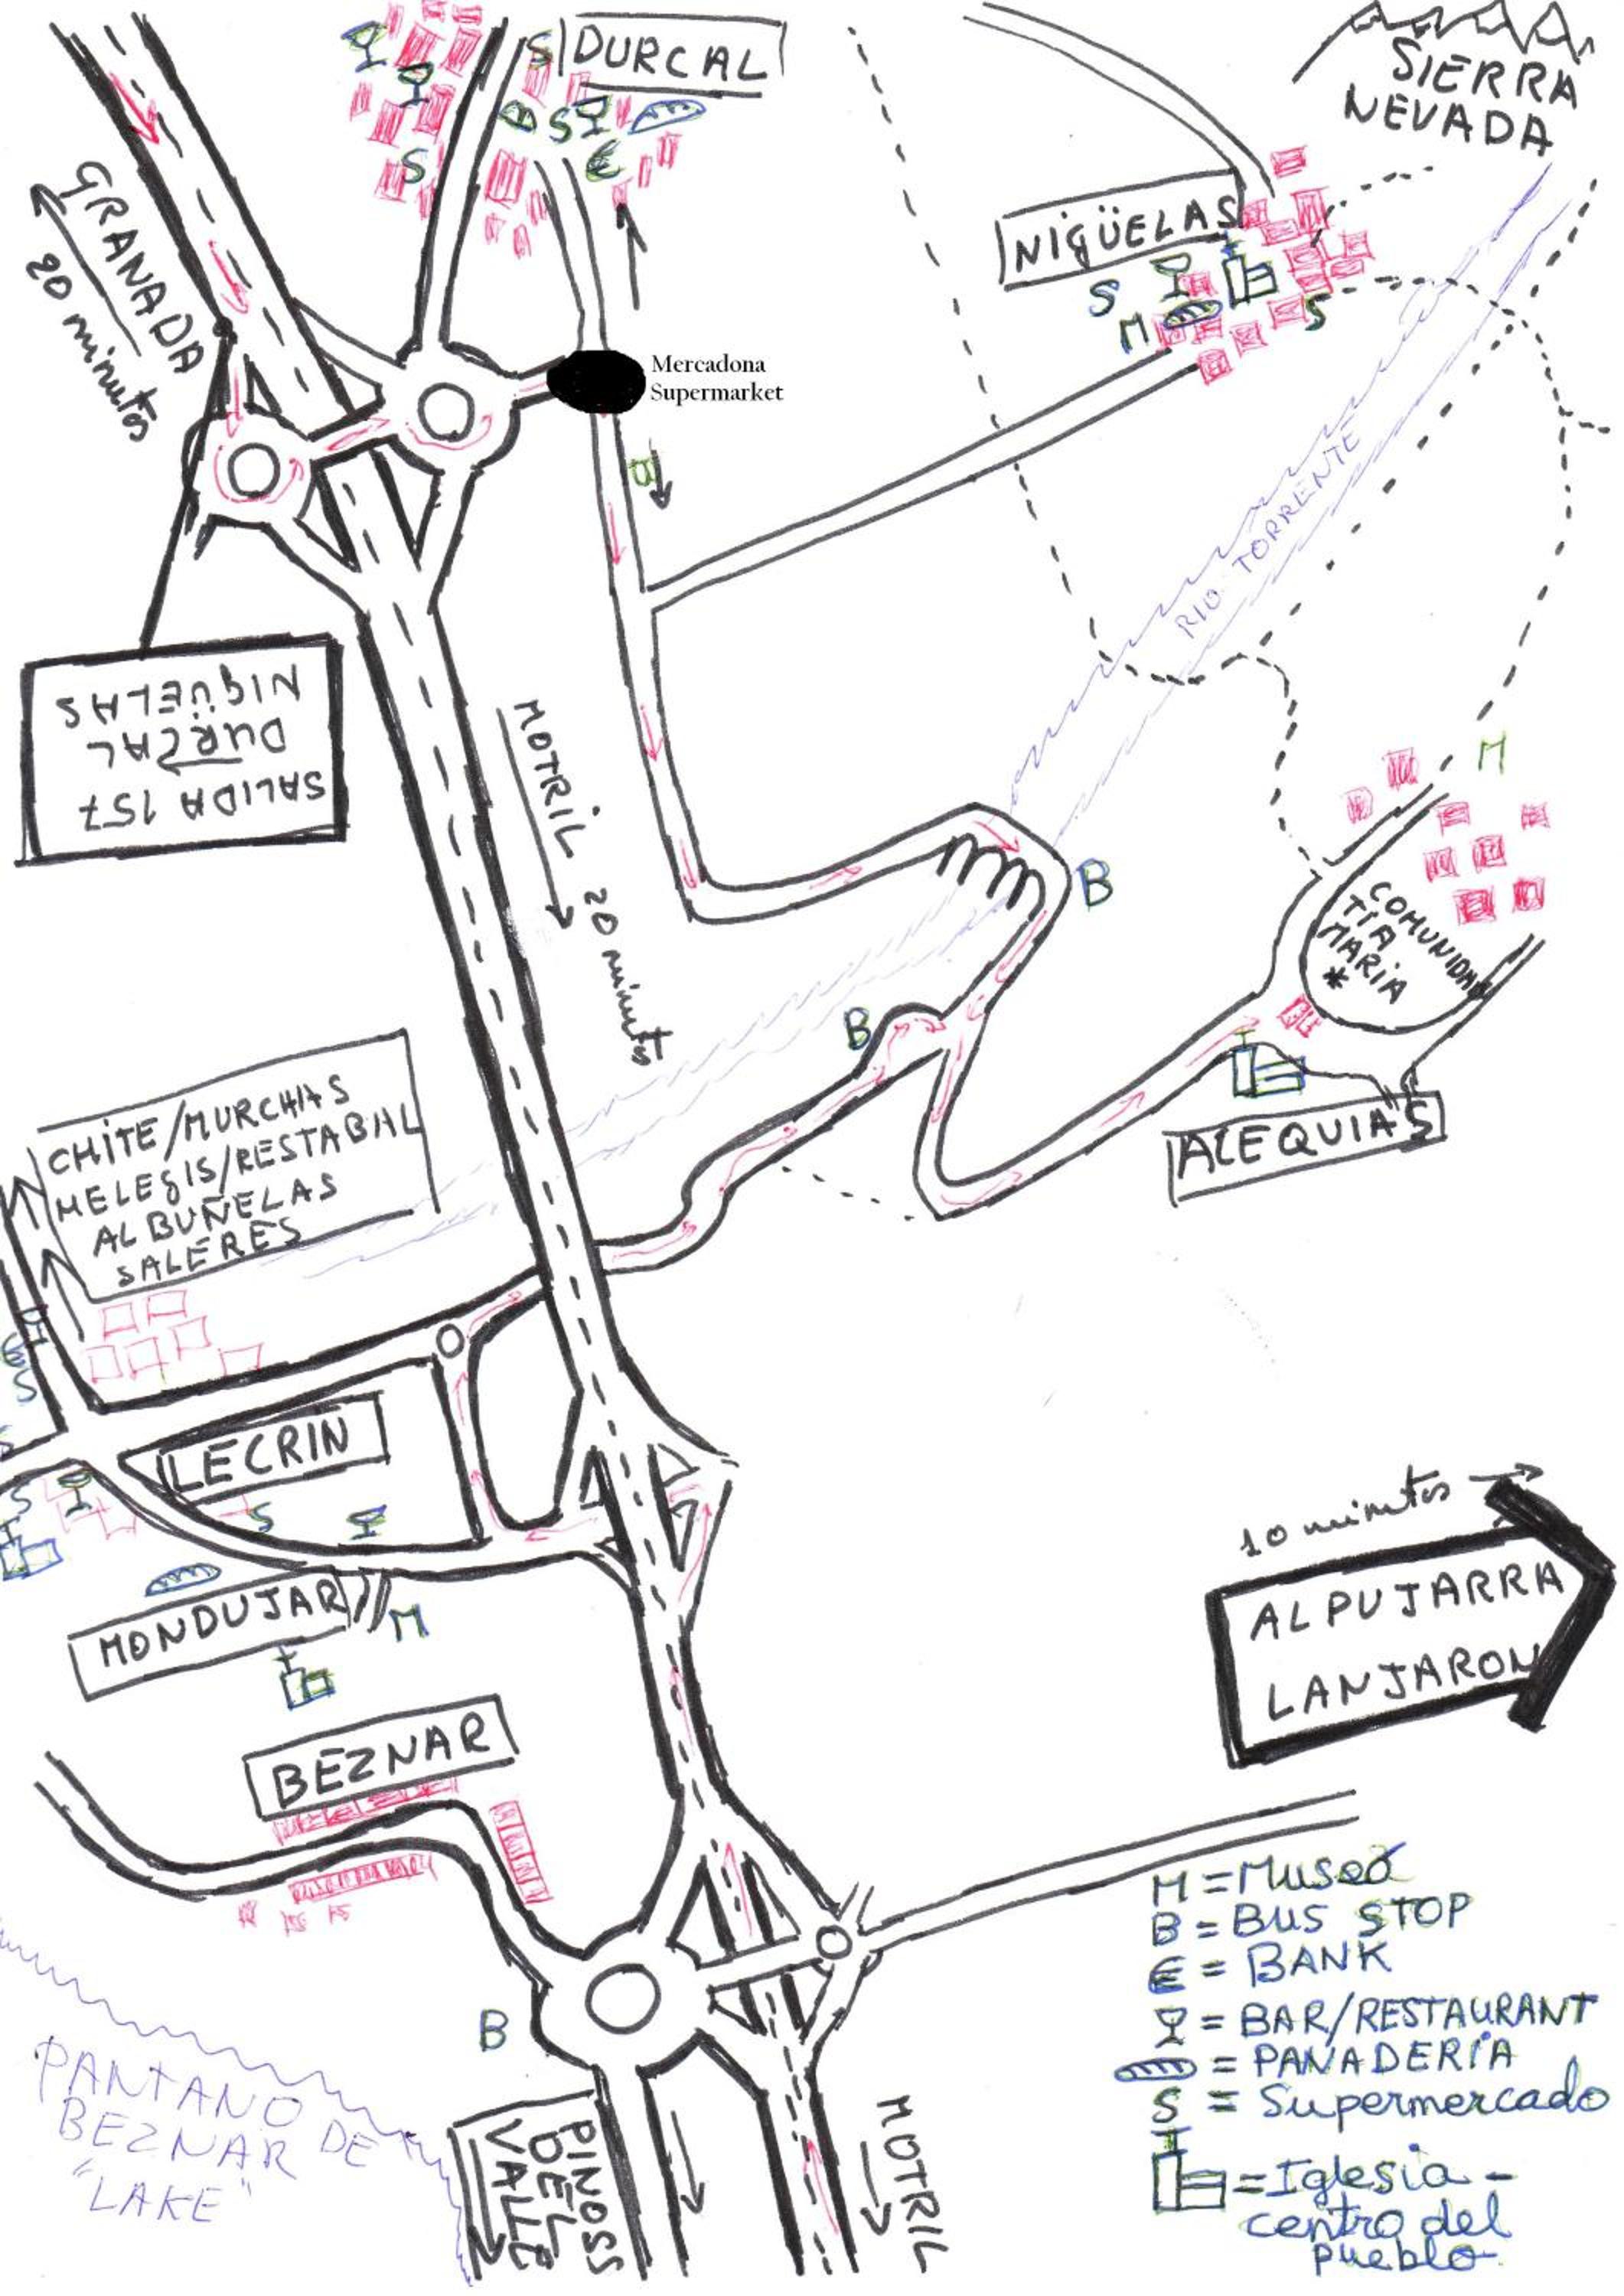 DURCAL
S
S
S
€
SIERRA
NEVADA
GRANADA
20 minutos
NIGÜELAS
S
M
S
Mercadona
Supermarket
B
RIO TORRENTE
SALIDA 157
DURCAL
NIGÜELAS
MOTRIL 20 minutos
M
B
COMUNIDAD
TIA
MARIA
*
B
ACEQUIAS
CHITE/MURCHAS
MELEGIS/RESTABAL
ALBUÑELAS
SALERES
€
S
LECRIN
S
S
MONDUJAR
M
10 minutos
ALPUJARRA
LANJARON
BEZNAR
B
PANTANO
BEZNAR DE
"LAKE"
PINOSS
DEL
VALLE
MOTRIL
M = Museo
B = BUS STOP
€ = BANK
= BAR/RESTAURANT
= PANADERIA
S = Supermercado
= Iglesia -
centro del
pueblo.